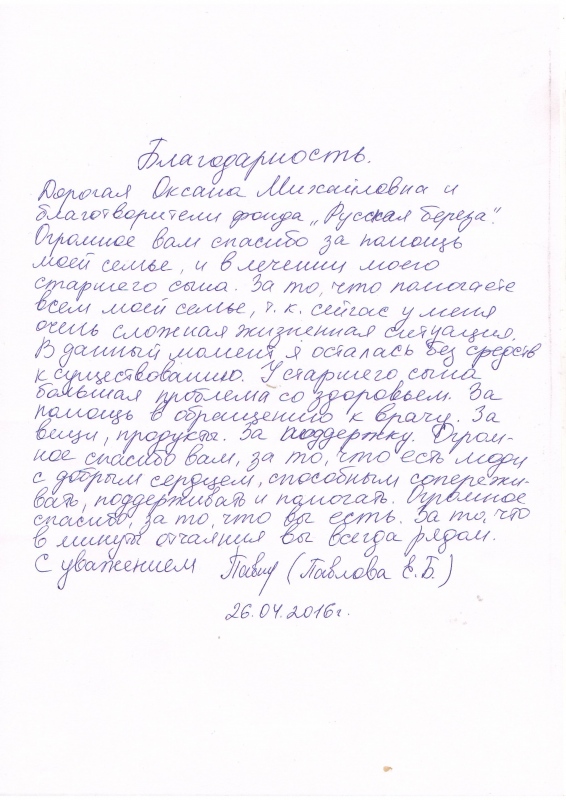 Благодарность.
Дорогая Оксана Михайловна и
благотворители фонда „Русская береза".
Огромное вам спасибо за помощь
моей семье, и в лечении моего
старшего сына. За то, что помогаете
всем моей семье, т.к. сейчас у меня
очень сложная жизненная ситуация.
В данный момент я осталась без средств
к существованию. У старшего сына
большая проблема со здоровьем. За
помощь в обращению к врачу. За
вещи, продукты. За поддержку. Огром-
ное спасибо вам, за то, что есть люди
с добрым сердцем, способным сопережи-
вать, поддерживать и помогать. Огромное
спасибо, за то, что вы есть. За то, что
в минуты отчаяния вы всегда рядом.
С уважением (Павлова Е.Б.)
26.04.2016г.